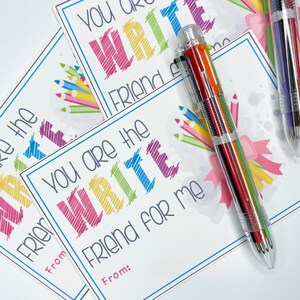 YOU ARE THE
WRITE
FRIEND FOR ME
YOU ARE the
WRITE
FRIEND
From:
YOU ARE the
WRITE
FRIEND FOR ME
From: